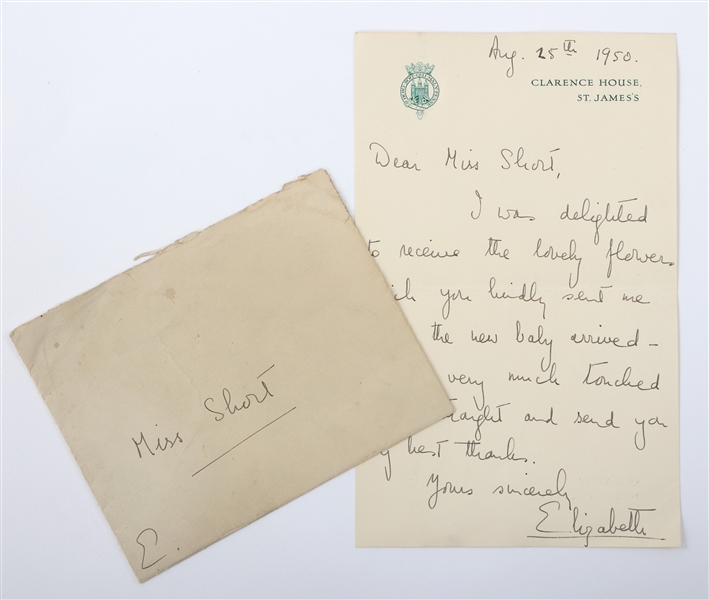 Aug. 25th 1950.
CLARENCE HOUSE,
ST. JAMES'S
Dear Miss Short,
I was delighted
to receive the lovely flowers
you kindly sent me
the new baby arrived -
very much touched
and send you
best thanks.
Yours sincerely
Elizabeth
Miss Short
E.